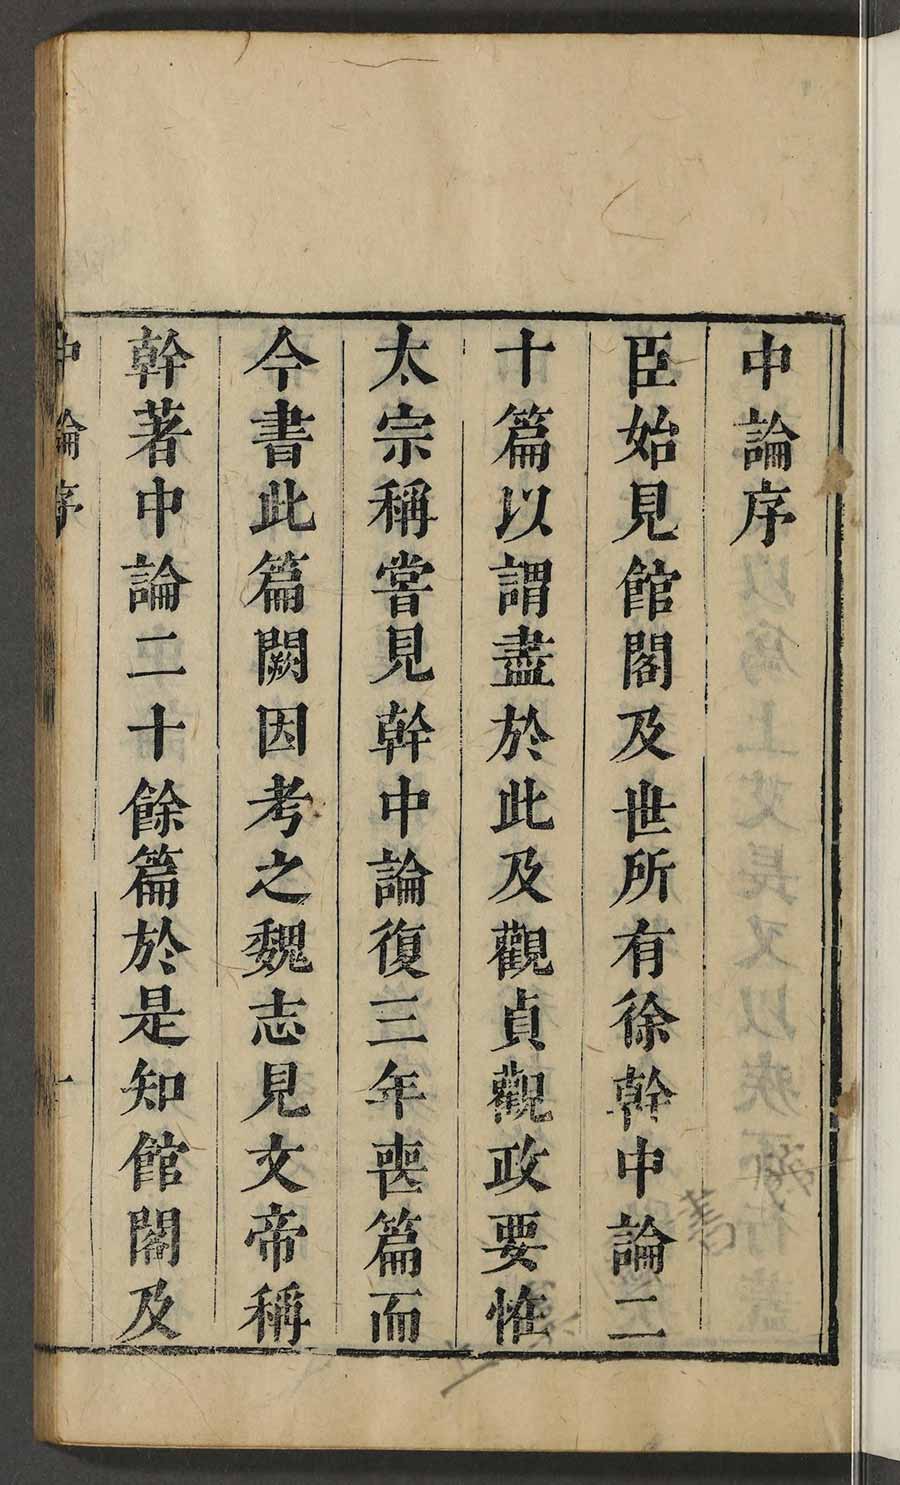 中論序
臣始見館閣及世所有徐幹中論二
十篇以謂盡於此及觀貞觀政要惟
太宗稱嘗見幹中論復三年喪篇而
今書此篇闕因考之魏志見文帝稱
幹著中論二十餘篇於是知館閣及
中論序
一